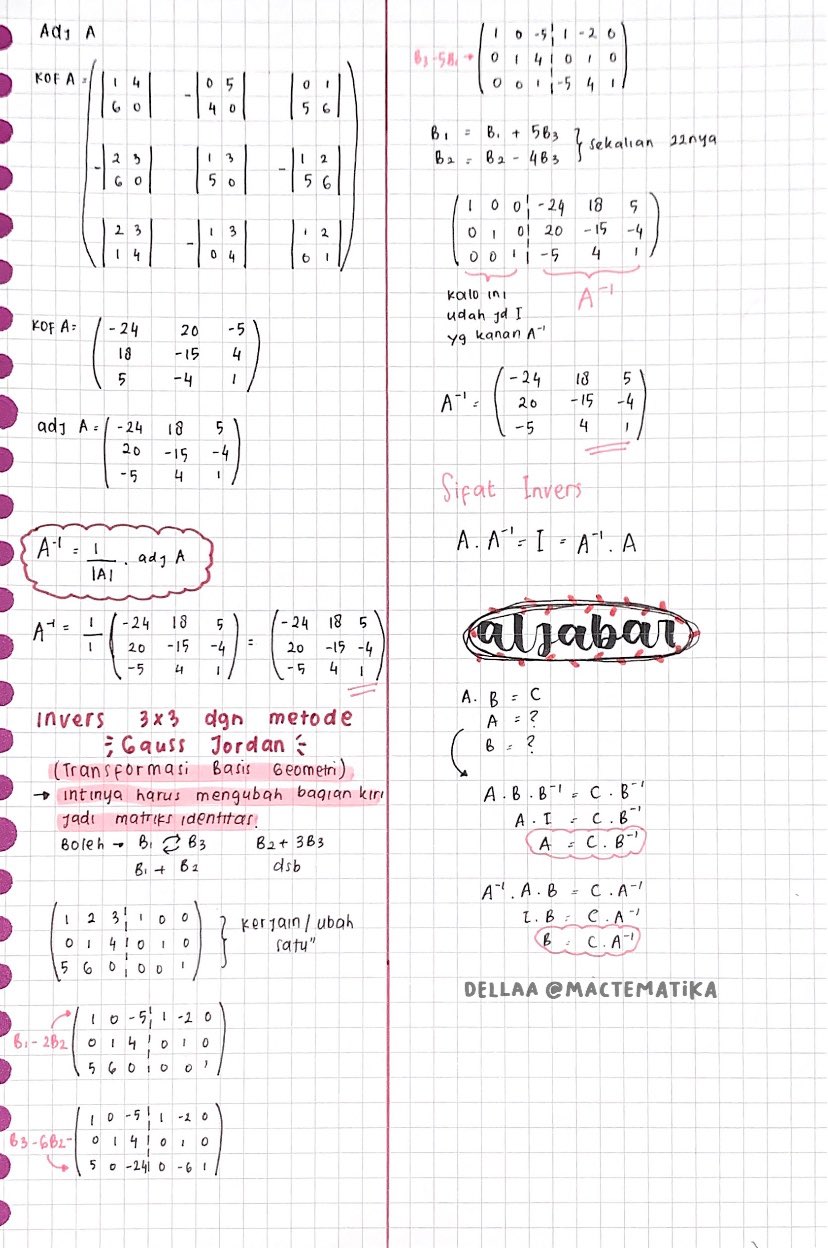 Adj A
KOF A = ( |1 4| -|0 5| |0 1|
|6 0| |4 0| |5 6|
-|2 3| |1 3| -|1 2|
|6 0| |5 0| |5 6|
|2 3| -|1 3| |1 2|
|1 4| |0 4| |0 1| )
KOF A = ( -24 20 -5
18 -15 4
5 -4 1 )
adj A = ( -24 18 5
20 -15 -4
-5 4 1 )
A⁻¹ = 1/|A| . adj A
A⁻¹ = 1/1 ( -24 18 5 = ( -24 18 5
20 -15 -4 20 -15 -4
-5 4 1 ) -5 4 1 )
invers 3x3 dgn metode
Gauss Jordan
(Transformasi Basis Geometri)
→ intinya harus mengubah bagian kiri
jadi matriks identitas.
Boleh → B₁ ⇄ B₃ B₂ + 3B₃
B₁ + B₂ dsb
( 1 2 3 ¦ 1 0 0
0 1 4 ¦ 0 1 0
5 6 0 ¦ 0 0 1 )
} kerjain / ubah
satu"
( 1 0 -5 ¦ 1 -2 0
B₁-2B₂ 0 1 4 ¦ 0 1 0
5 6 0 ¦ 0 0 1 )
( 1 0 -5 ¦ 1 -2 0
B₃-6B₂ 0 1 4 ¦ 0 1 0
5 0 -24 ¦ 0 -6 1 )
( 1 0 -5 ¦ 1 -2 0
B₃-5B₁ → 0 1 4 ¦ 0 1 0
0 0 1 ¦ -5 4 1 )
B₁ = B₁ + 5B₃
B₂ = B₂ - 4B₃
} sekalian 22nya
( 1 0 0 ¦ -24 18 5
0 1 0 ¦ 20 -15 -4
0 0 1 ¦ -5 4 1 )
kalo ini
udah jd I
yg kanan A⁻¹
A⁻¹
A⁻¹ = ( -24 18 5
20 -15 -4
-5 4 1 )
Sifat Invers
A . A⁻¹ = I = A⁻¹ . A
aljabar
A . B = C
A = ?
B = ?
A . B . B⁻¹ = C . B⁻¹
A . I = C . B⁻¹
A = C . B⁻¹
A⁻¹ . A . B = C . A⁻¹
I . B = C . A⁻¹
B = C . A⁻¹
DELLAA @MACTEMATiKA